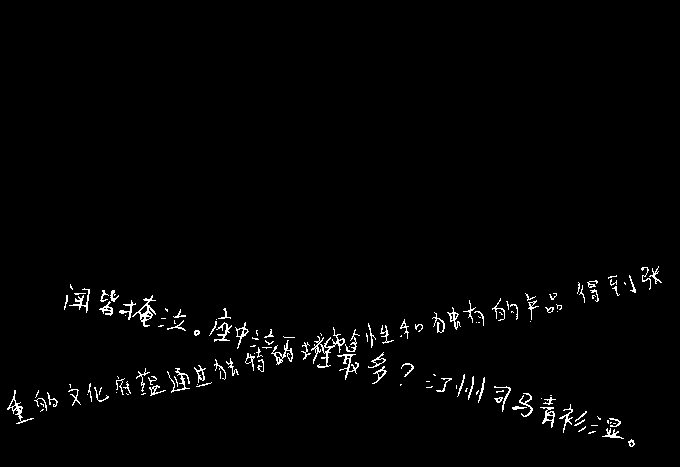 闻皆掩泣。座中泣下谁最多？江州司马青衫湿。
重的文化底蕴通过独特的完整性和独有的产品得到张